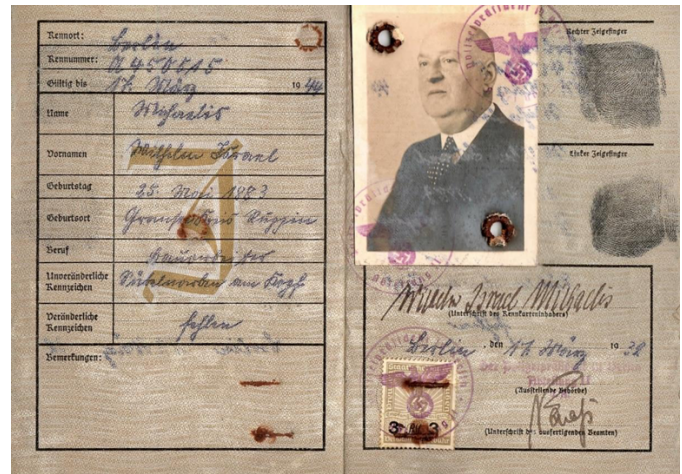 Kennort: Berlin
Kennummer: A 450515
Gültig bis 17. März 1944
Name Michaelis
Vornamen Wilhelm Israel
Geburtstag 25. Mai 1883
Geburtsort Gransee Kreis Ruppin
Beruf Bauarbeiter
Unveränderliche
Kennzeichen am Kopf
Veränderliche
Kennzeichen fehlen
Bemerkungen:
J
Rechter Zeigefinger
Linker Zeigefinger
Wilhelm Israel Michaelis
(Unterschrift des Kennkarteninhabers)
Berlin, den 17. März 1939
Der Polizeipräsident in Berlin
(Ausstellende Behörde)
(Unterschrift des ausfertigenden Beamten)
3 RM 3